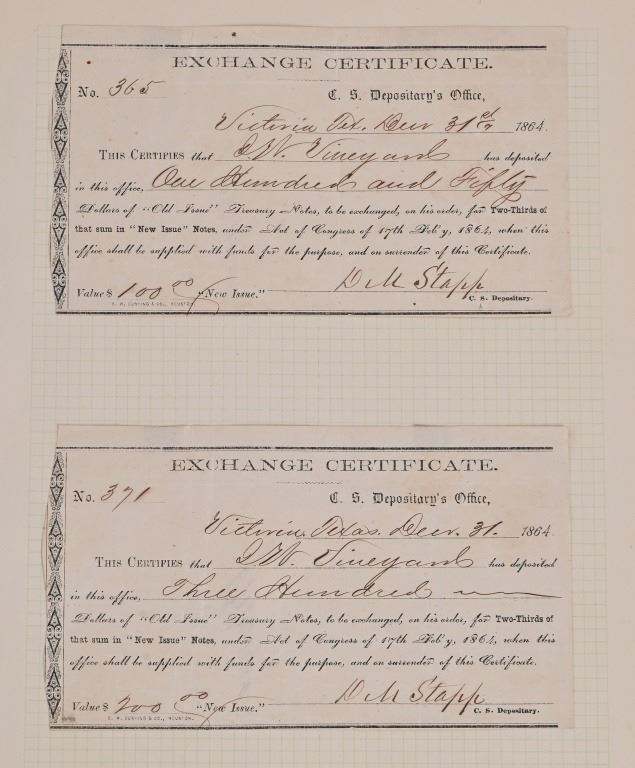 EXCHANGE CERTIFICATE.
No. 365
C. S. Depositary's Office,
Victoria Tex. Decr 31st 1864.
THIS CERTIFIES that I. W. Vineyard has deposited
in this office, One Hundred and Fifty
Dollars of "Old Issue" Treasury Notes, to be exchanged, on his order, for Two-Thirds of
that sum in "New Issue" Notes, under Act of Congress of 17th Feb'y, 1864, when this
office shall be supplied with funds for the purpose, and on surrender of this Certificate.
D M Stapp
Value $ 100 00 "New Issue."
C. S. Depositary.
HOUSTON.
EXCHANGE CERTIFICATE.
No. 371
C. S. Depositary's Office,
Victoria, Texas. Decr. 31. 1864
THIS CERTIFIES that I W. Vineyard has deposited
in this office, Three Hundred
Dollars of "Old Issue" Treasury Notes, to be exchanged, on his order, for Two-Thirds of
that sum in "New Issue" Notes, under Act of Congress of 17th Feb'y, 1864, when this
office shall be supplied with funds for the purpose, and on surrender of this Certificate.
D M Stapp
Value $ 200 00 "New Issue."
C. S. Depositary.
HOUSTON.